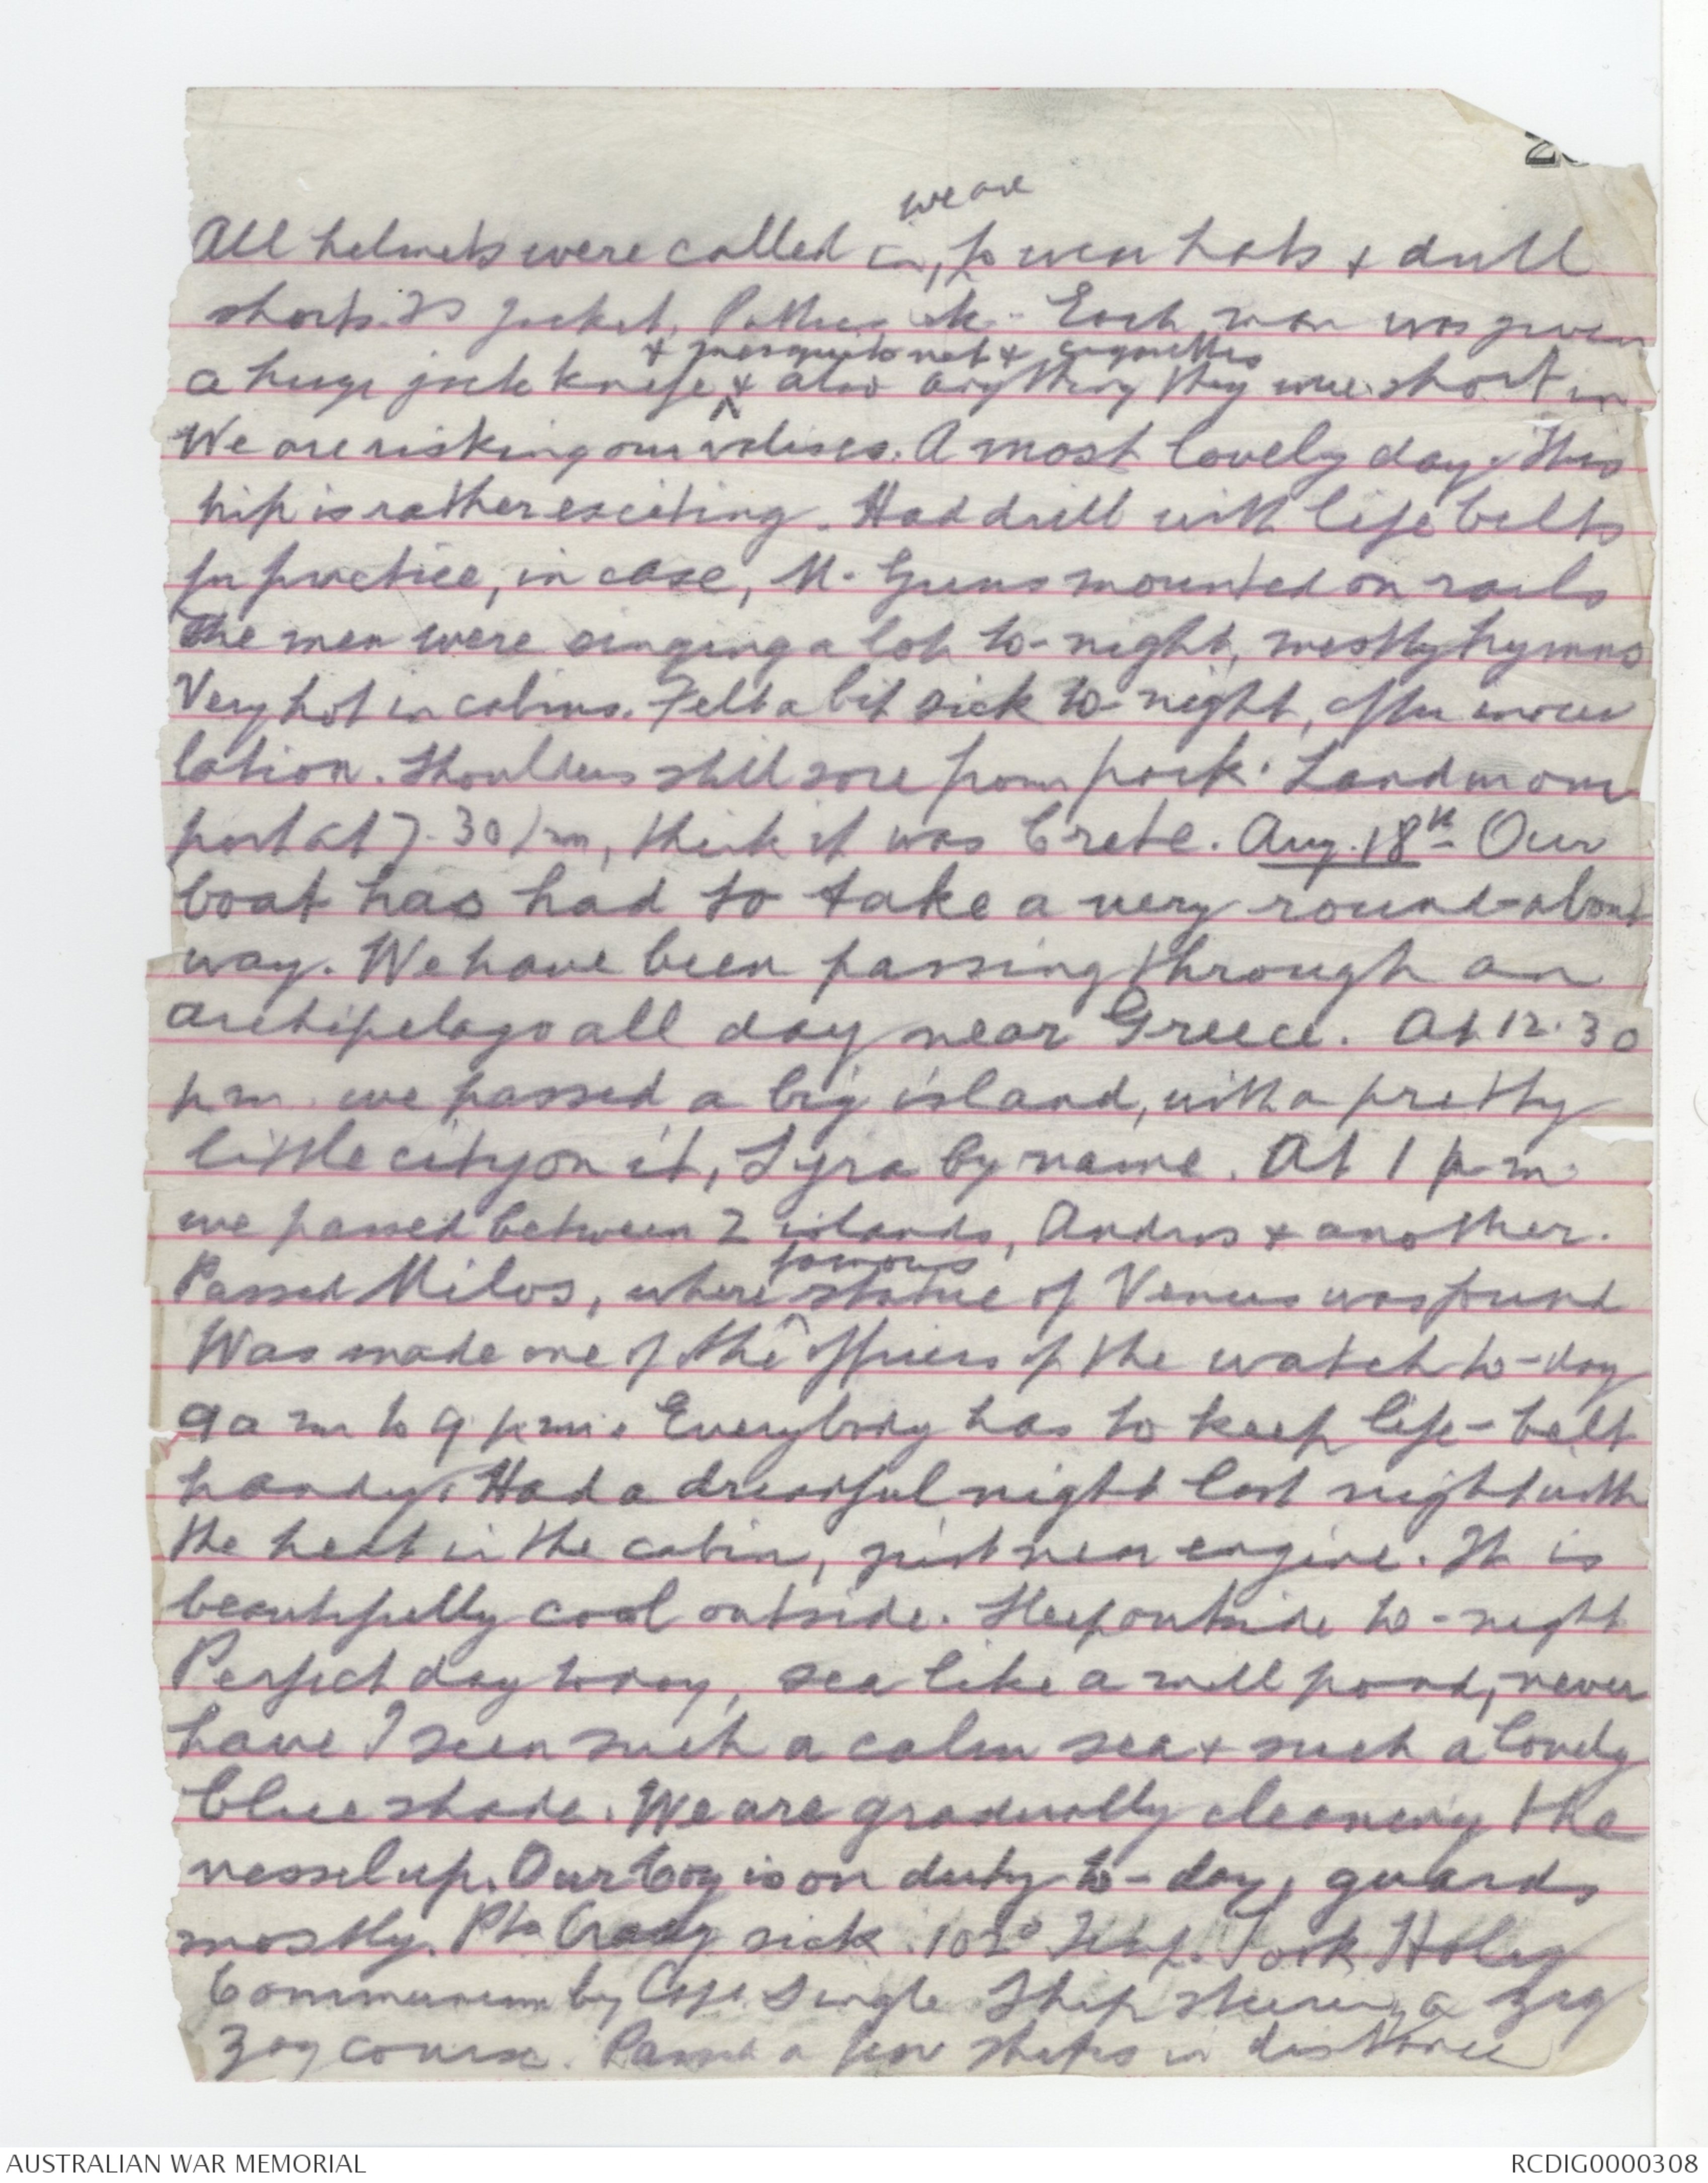 we are
All helmets were called in, to wear hats & drill
shorts. jacket, Puttees, etc. Each man was given
& mosquito net & cigarettes
a huge jack knife & also anything they were short in
We are risking our valises. A most lovely day. This
trip is rather exciting. Had drill with life belts
for practice, in case, M. Guns mounted on rails
The men were singing a lot to-night, mostly hymns
Very hot in cabins. Felt a bit sick to-night, after inocu
lation. Shoulders still sore from pack. Land on our
port at 7.30 pm, think it was Crete. Aug. 18th Our
boat has had to take a very round-about
way. We have been passing through an
archipelago all day near Greece. At 12.30
pm we passed a big island, with a pretty
little city on it, Syra by name. At 1 p.m
we passed between 2 islands, Andros & another.
famous
Passed Milos, where statue of Venus was found
Was made one of the officers of the watch to-day
9 a m to 9 p.m. Everybody has to keep life-belt
handy. Had a dreadful night last night with
the heat in the cabin, just near engine. It is
beautifully cool outside. Sleep outside to-night
Perfect day today, sea like a mill pond, never
have I seen such a calm sea & such a lovely
blue shade. We are gradually cleaning the
vessel up. Our Coy is on duty to-day, guards
mostly. Pte Grady sick. 102° Temp. Took Holy
Communion by Capt. Single Ship steering a zig
zag course. Passed a few ships in distance
AUSTRALIAN WAR MEMORIAL
RCDIG0000308